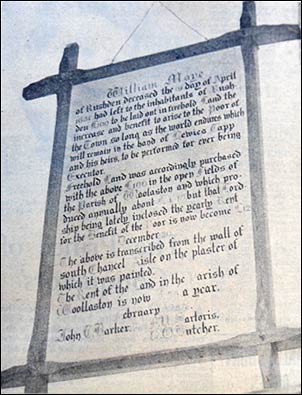 William Maye
of Rushden deceased the day of April
had left to the inhabitants of Rush-
den to be laid out in freehold Land the
increase and benefit to arise to the Poor of
the Town so long as the world endures which
will remain in the hand of Lewies Tapp
and his heirs, to be performed for ever being
Executor.
Freehold Land was accordingly purchased
with the above in the open Fields of
the Parish of Woolaston and which pro-
duced annually about but that Lord-
ship being lately inclosed the yearly Rent
for the Benefit of the Poor is now become
December
The above is transcribed from the wall of
south Chancel Aisle on the plaster of
which it was painted.
The Rent of the Land in the Parish of
Woollaston is now a year.
February
John Barker. Sartoris.
Butcher.